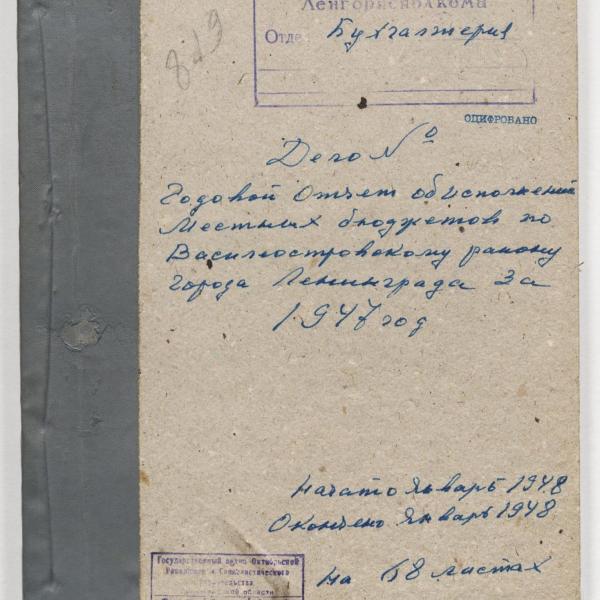 Ленгорисполкома
Отде Бухгалтерия
819
ОЦИФРОВАНО
Дело №
Годовой Отчет об исполнении
Местных бюджетов по
Василеостровскому району
города Ленинграда за
1947 год
Начато Январь 1948
Окончено Январь 1948
На 68 листах
Государственный архив Октябрьской
Революции и Социалистического
строительства
области